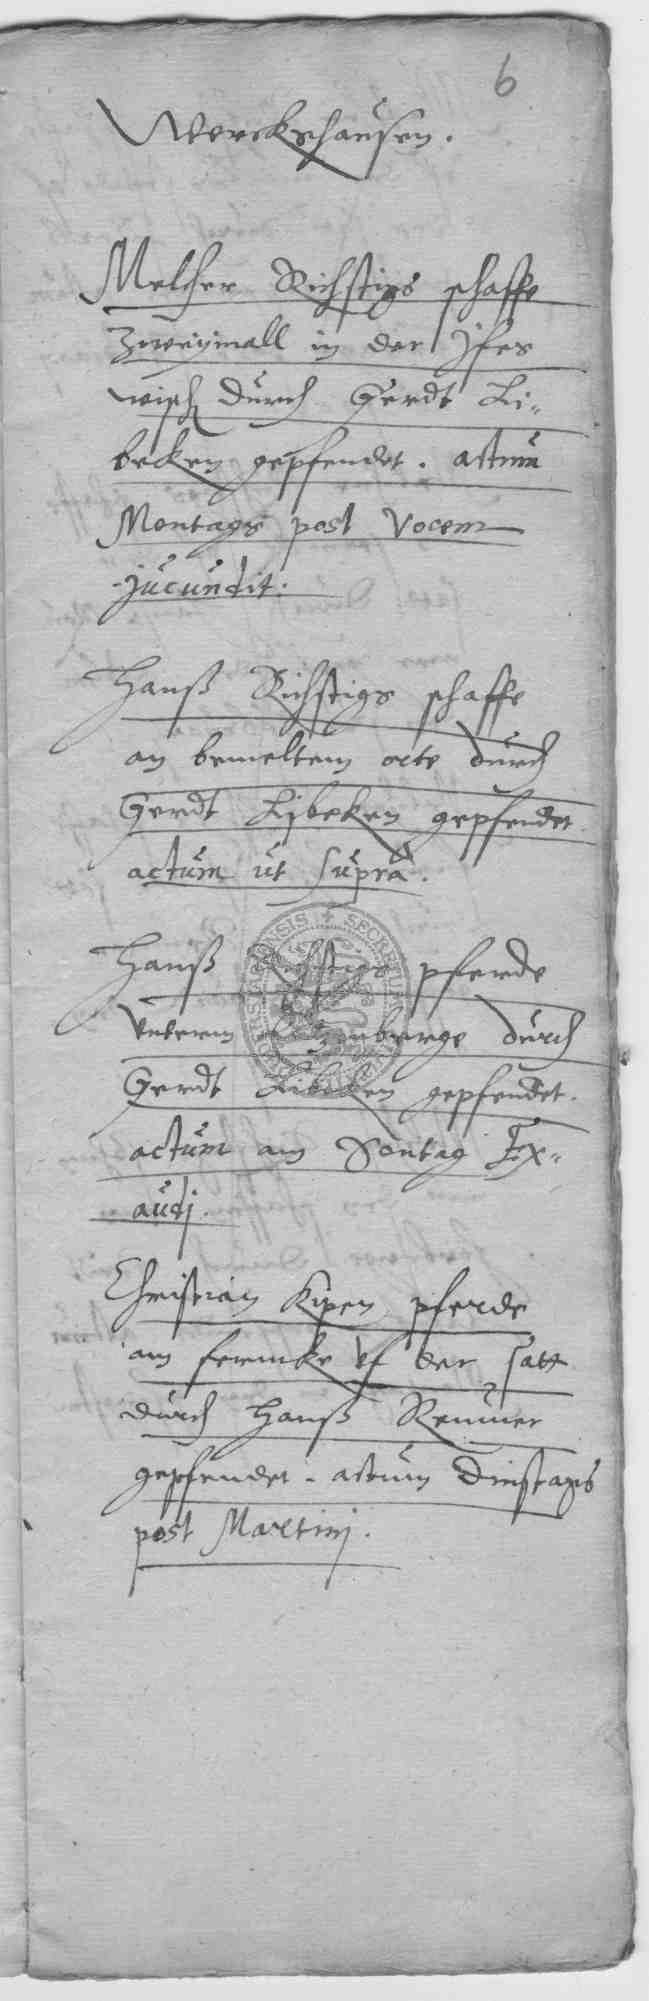 6
Werckshausen.
Melcher Richstigs schaffe
Zweymall in der
wisch durch Gerdt Li-
becken gepfendet. actum
Montags post Vocem
jucundit:
Hanß Richstigs schaffe
an bemeltem orte durch
Gerdt Lybeken gepfendet
actum ut supra.
Hanß Richstigs pferde
Unterm durch
Gerdt Libeken gepfendet.
actum am Sontag Ex-
audj.
Christian Kipen pferde
am uf der satt
durch Hanß
gepfendet. actum Dinstags
post Martinj.